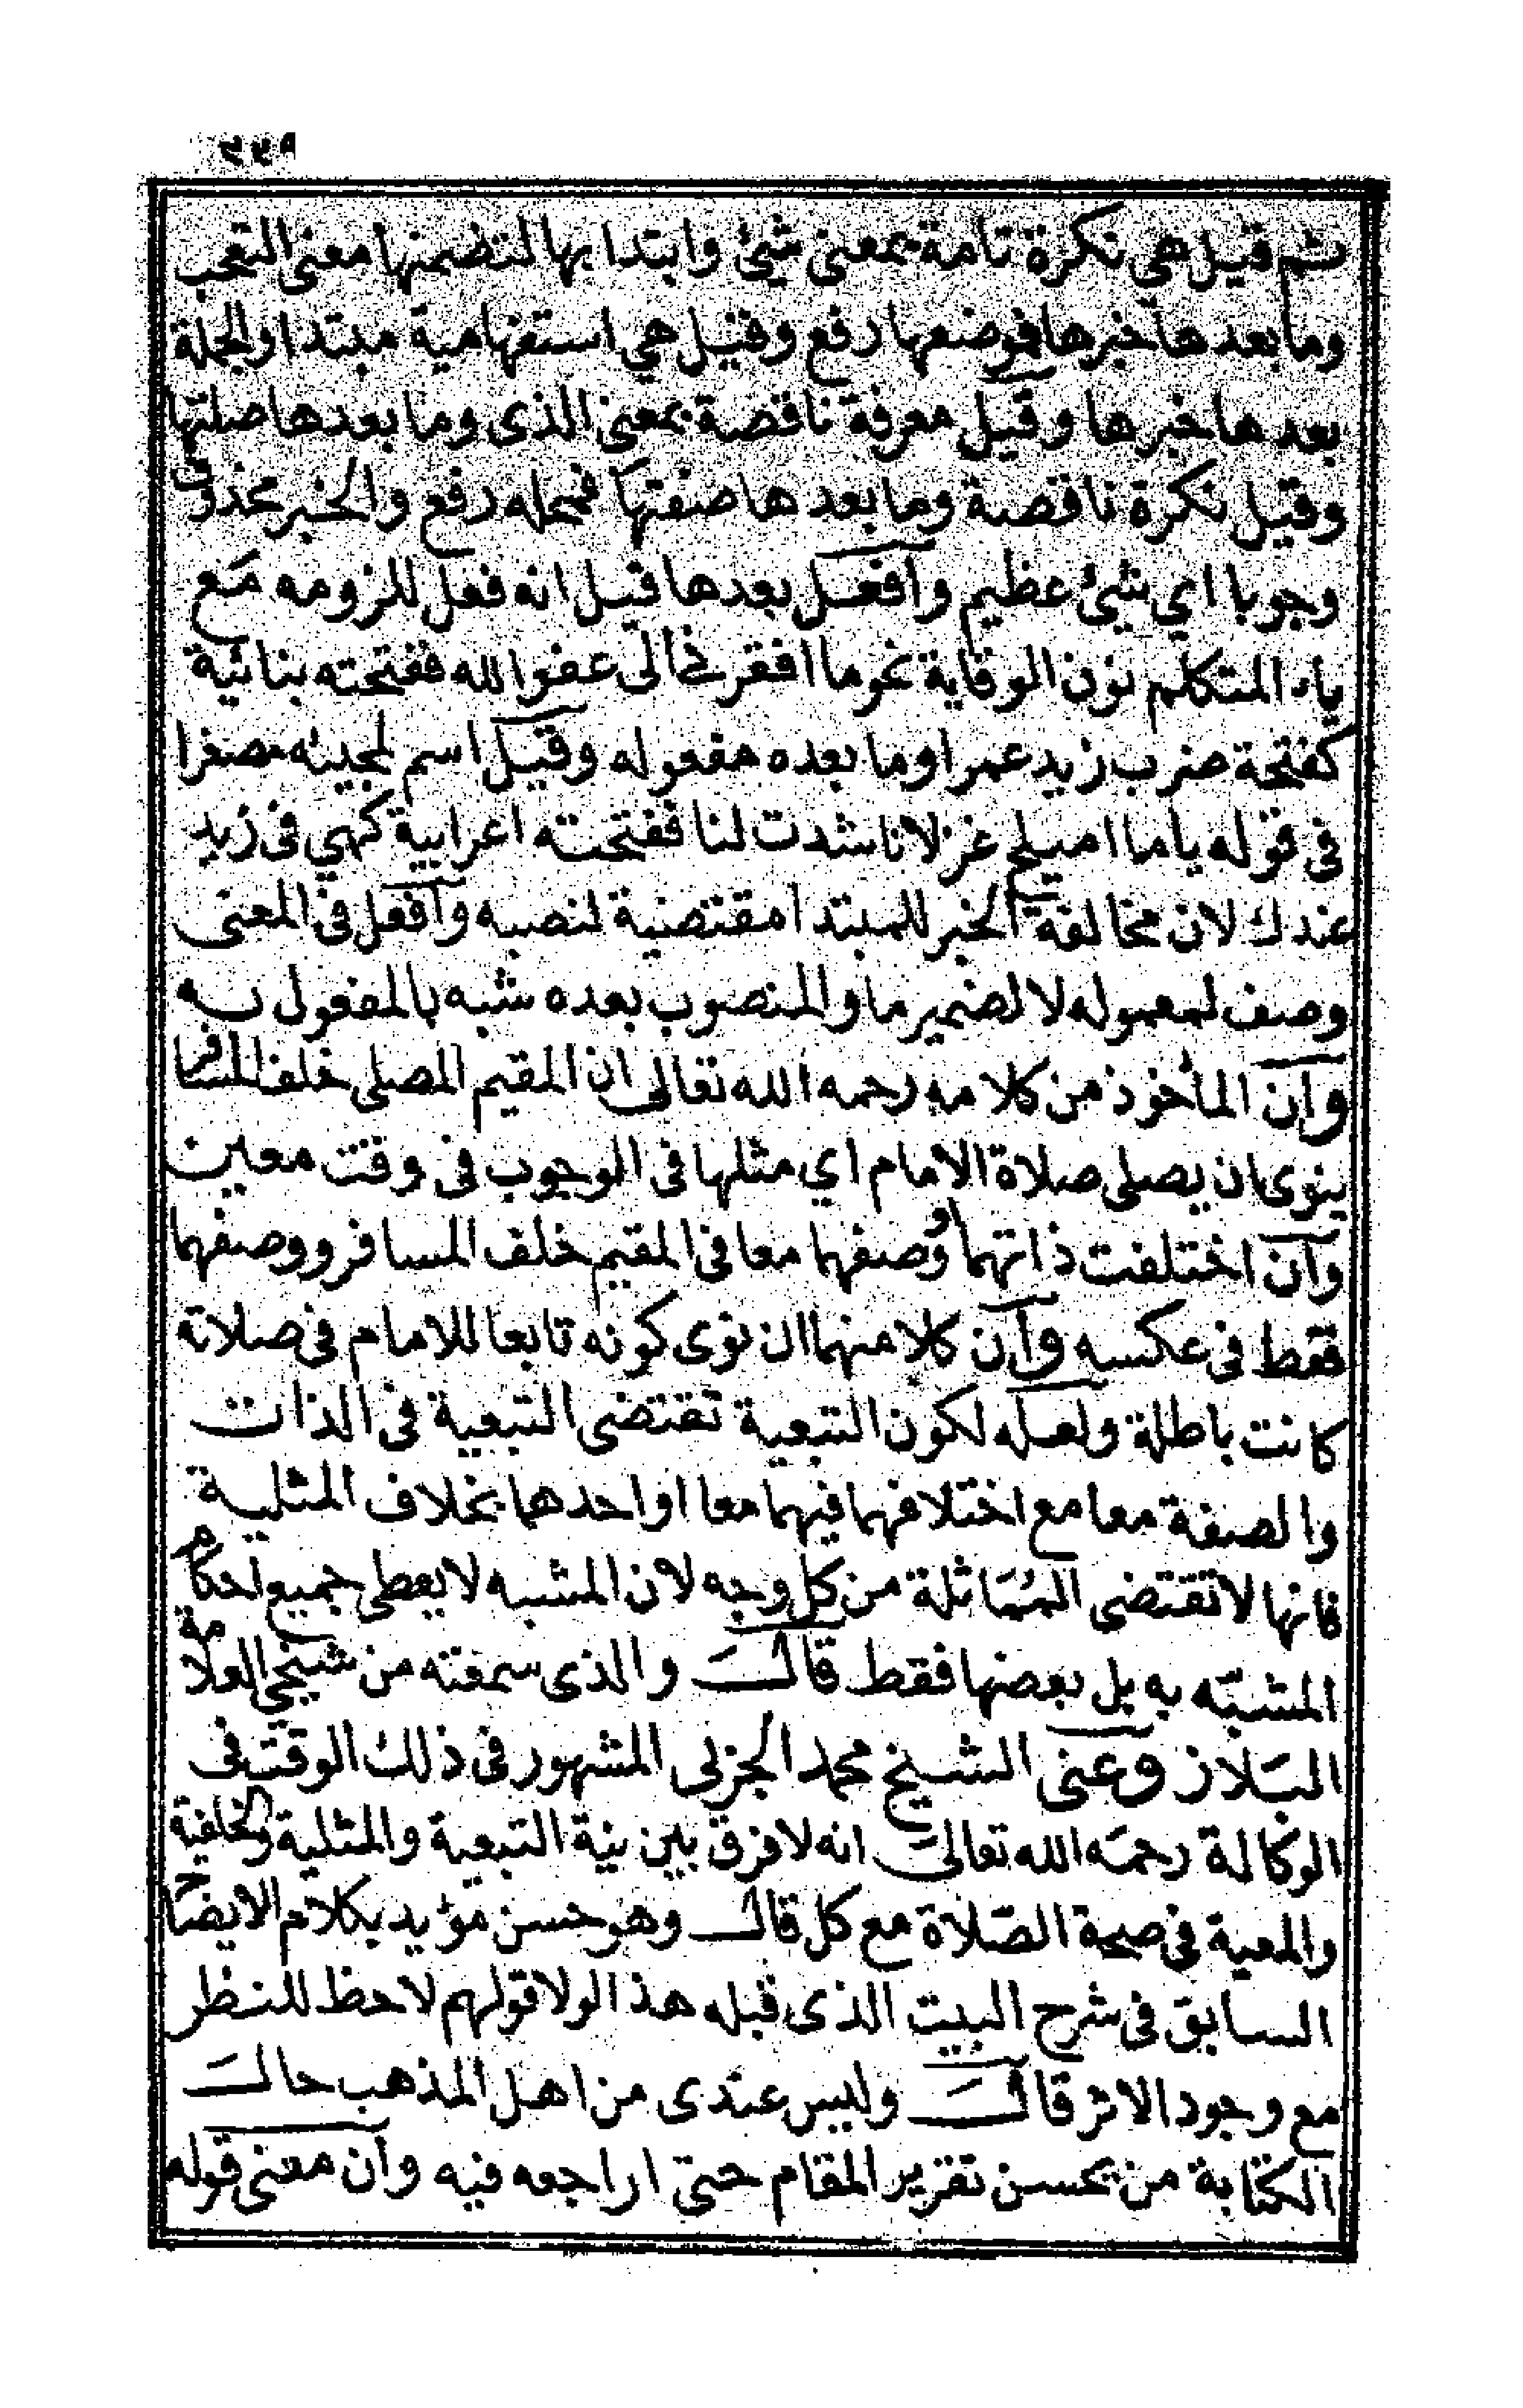 ٢٢٩
ثم قيل هي نكرة تامة بمعنى شيئ وابتدا بها لتضمنها معنى التعجب
وما بعدها خبرها فموضعها رفع وقيل هي استفهامية مبتدا والجملة
بعدها خبرها وقيل معرفة ناقصة بمعنى الذى وما بعدها صلتها
وقيل نكرة ناقصة وما بعدها صفتها فمحله رفع والخبر محذوف
وجوبا اي شيئ عظيم وأفعل بعدها قيل انه فعل للزومه مع
ياء المتكلم نون الوقاية نحو ما افقرني الى عفو الله ففتحته بنائية
كفتحة ضرب زيد عمرا وما بعده مفعوله وقيل اسم لمجيئه مصغرا
فى قوله ياما اميلح غزلانا شدت لنا ففتحته اعرابية كهي فى زيد
عندك لان مخالفة الخبر للمبتدا مقتضية لنصبه وأفعل فى المعنى
وصف لمعموله لا لضمير ما والمنصوب بعده شبه بالمفعول به
وان المأخوذ من كلامه رحمه الله تعالى ان المقيم المصلى خلف المسافر
ينوى ان يصلى صلاة الامام اي مثلها فى الوجوب فى وقت معين
وان اختلفت ذاتهما ووصفهما معا فى المقيم خلف المسافر ووصفهما
فقط فى عكسه وان كلا منهما ان نوى كونه تابعا للامام فى صلاته
كانت باطلة ولعله لكون التبعية تقتضى التبعية فى الذات
والصفة معا مع اختلافهما فيهما معا او احدهما بخلاف المثلية
فانها لا تقتضى المُمَاثلة من كل وجه لان المشبه لا يعطى جميع احكام
المشبّه به بل بعضها فقط قالَ والذى سمعته من شيخي العلامة
البَلاز وعنى الشيخ محمد الجزلى المشهور فى ذلك الوقت فى
الوكالة رحمَه الله تعالىَ انه لا فرق بين نية التبعية والمثلية والخلفية
والمعية فى صحة الصّلاة مع كل قالَ وهو حسن مؤيد بكلام الايضاح
السابق فى شرح البيت الذى قبله هذا لولا قولهم لا حظ للنظر
مع وجود الاثر قالَ وليس عندى من اهل المذهب حالَ
الكتابة من يحسن تقرير المقام حتى اراجعه فيه وان معنى قوله